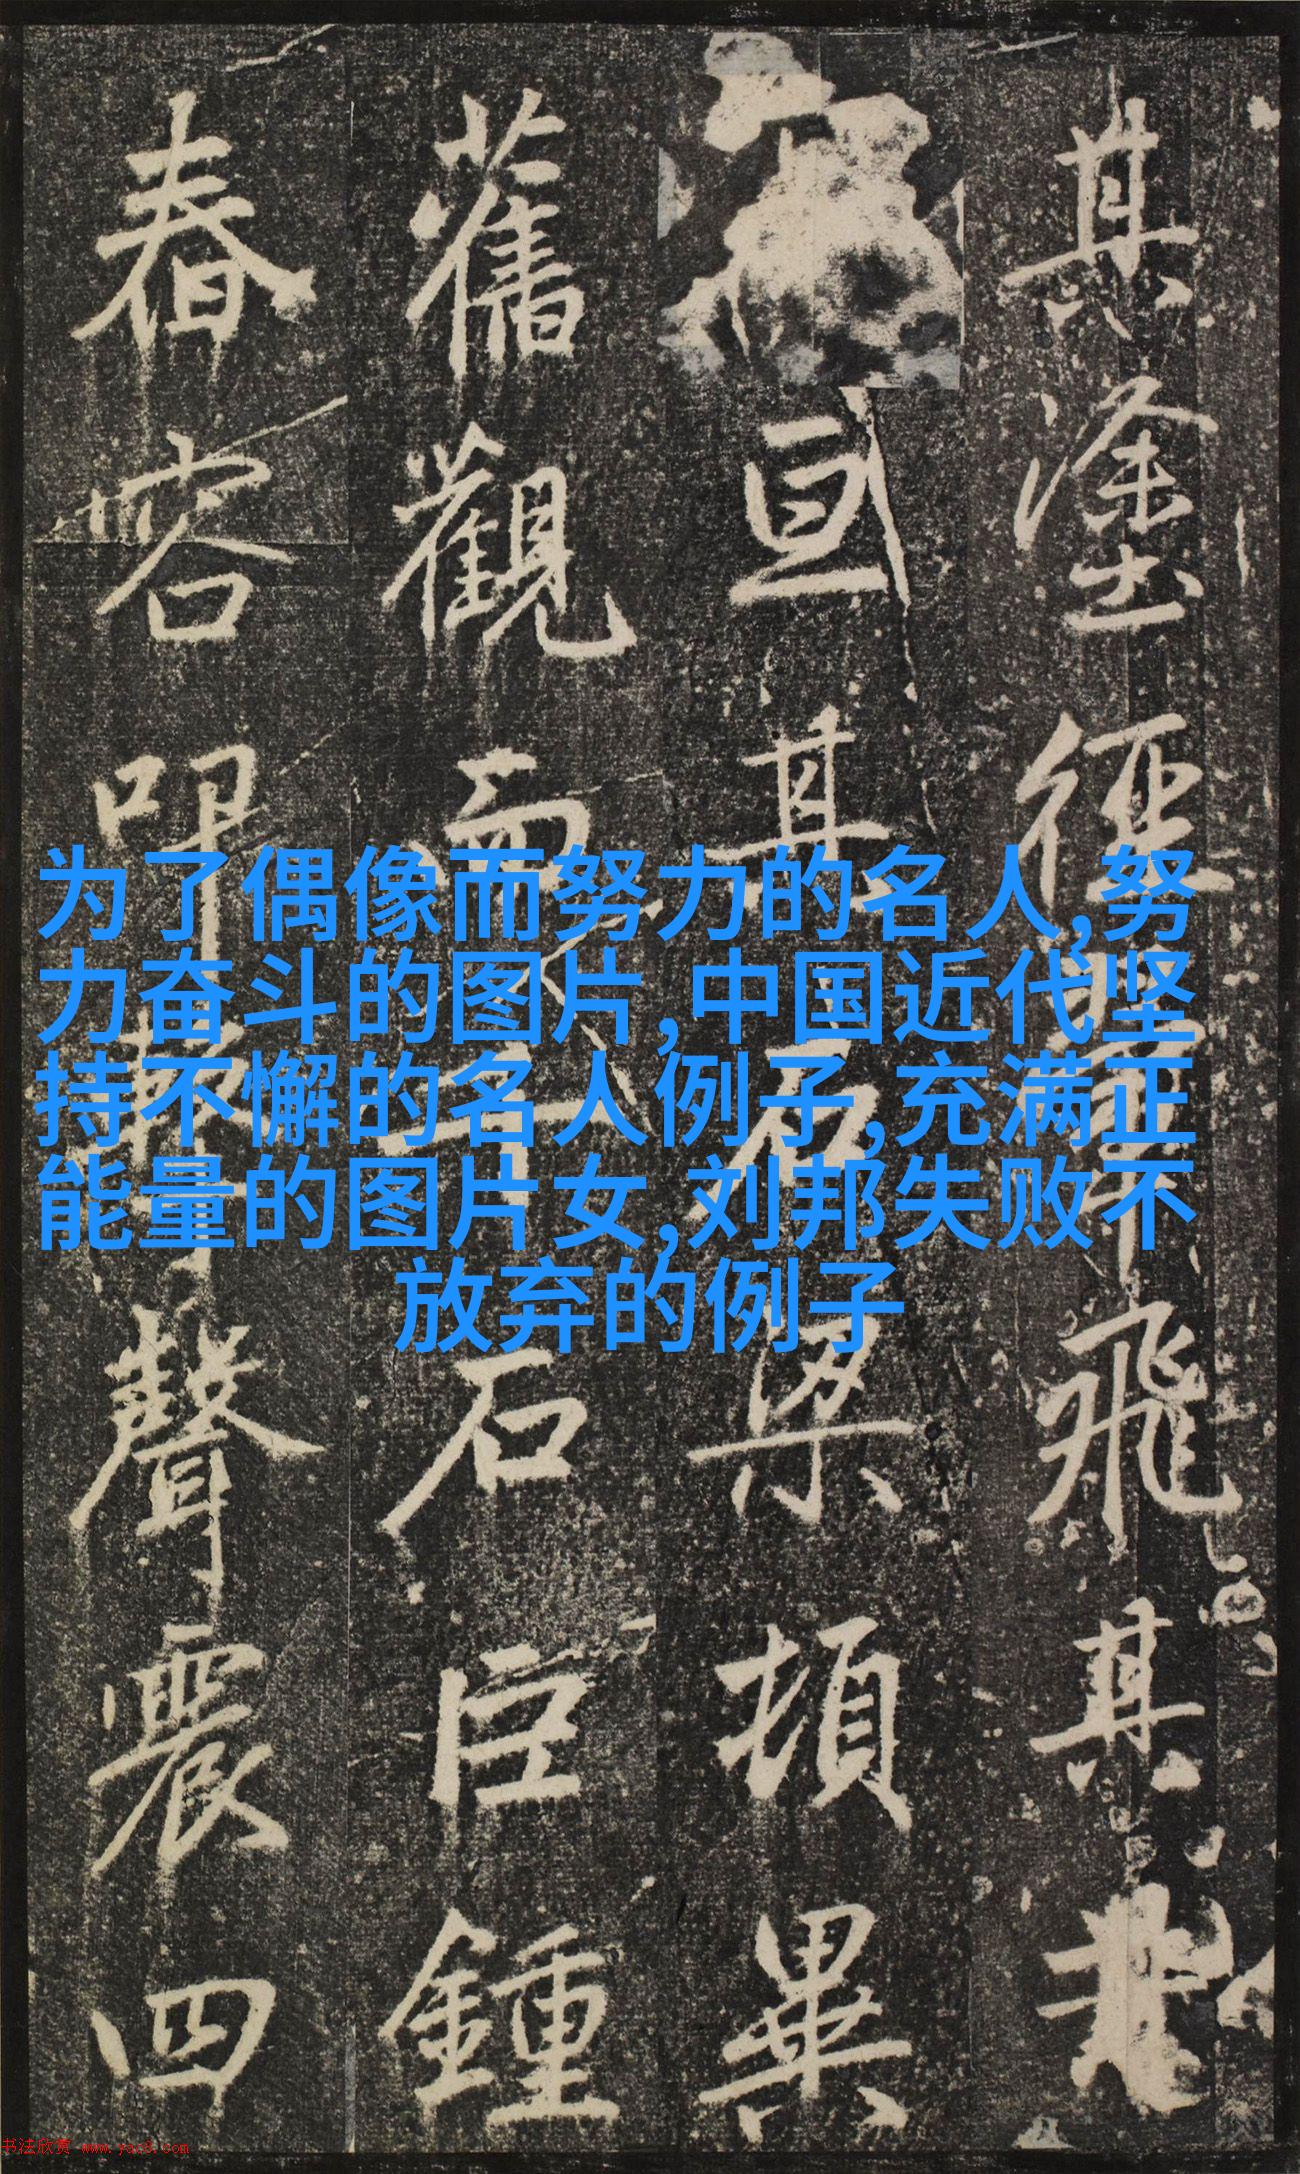 其塗徑飛其
亘其石梁頓異
舊觀石巨鍾
舂容叩聲震四
为了偶像而努力的名人,努
力奋斗的图片,中国近代坚
持不懈的名人例子,充满正
能量的图片女,刘邦失败不
放弃的例子
书法欣赏 www.yac8.com